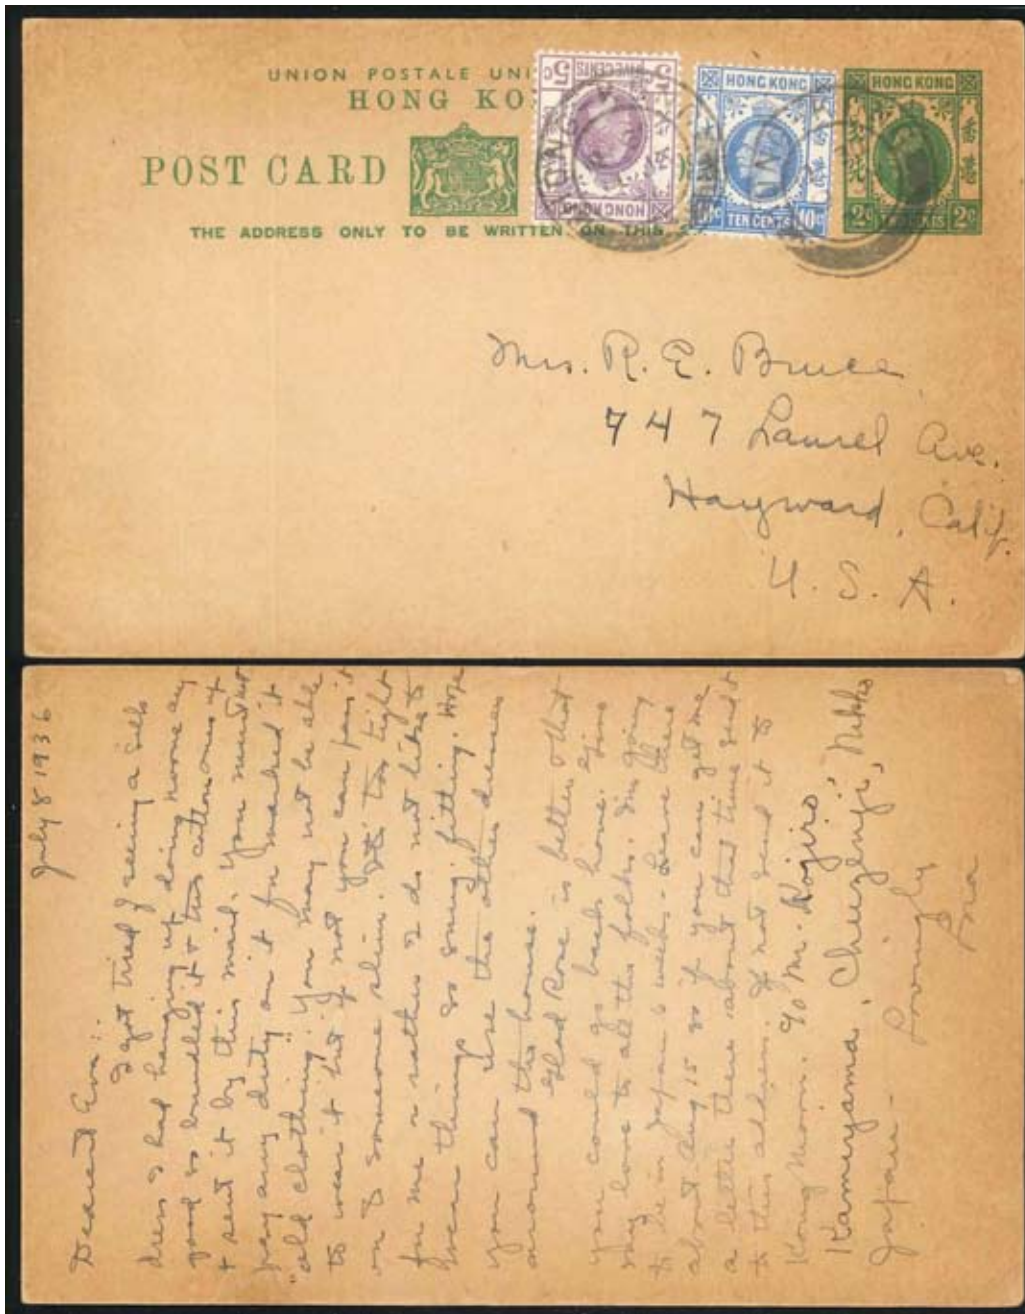 UNION POSTALE UNI
HONG KO
POST CARD
THE ADDRESS ONLY TO BE WRITTEN ON THIS
5c FIVE CENTS 5c
HONG KONG
HONG KONG
TEN CENTS 10c
HONG KONG
2c CENTS 2c
香港
Mrs. R. E. Bruce
747 Laurel Ave.
Hayward, Calif.
U. S. A.
July 8 1936
Dearest Eva:
I got tired of seeing a silk
dress I had hanging up doing no one any
good so bundled it & two cotton ones up
& sent it by this mail. You must not
pay any duty on it for marked it
"old clothing". You may not be able
to wear it but if not you can pass it
on to someone slim. Its too tight
for me or rather I do not like to
wear things so snug fitting. Hope
you can use the other dresses
around the house.
Glad Rose is better & that
you could go back home. Give
my love to all the folks. Im going
to be in Japan 6 weeks - Leave there
about Aug 15 so if you can get me
a letter there about that time send
to this address. If not send it to
Kong Moon. c/o Mr. Kojiro
Kamiyama, Chuzenji, Nikko
Japan - Lovingly